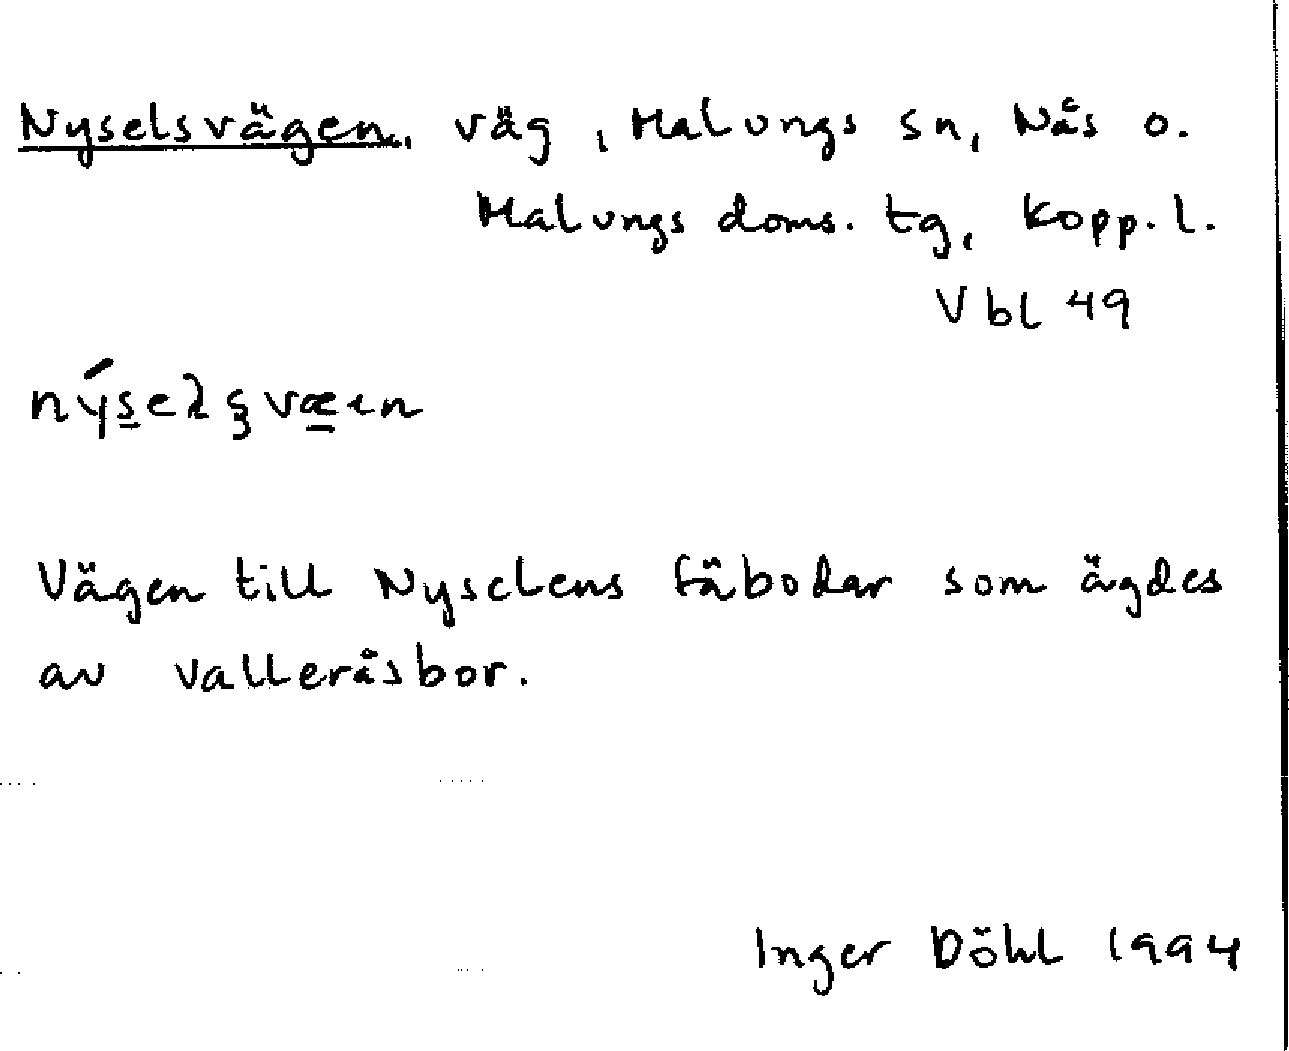 Nyselsvägen, väg, Malungs sn, Nås o.
Malungs doms. tg, Kopp. l.
Vbl 49
Vägen till Nyselens fäbodar som ägdes
av Valleråsbor.
Inger Döhl 1994